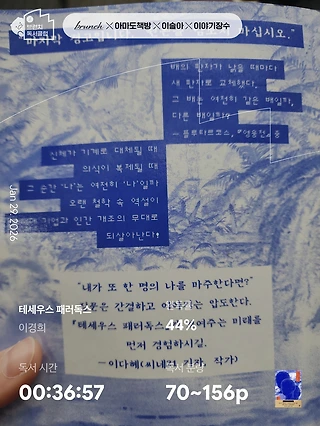 브런치
독서클럽
brunch × 아미도책방 × 이슬아 × 이야기장수
마지막 하십시오."
배의 판자가 낡을 때마다
새 판자로 교체했다.
그 배는 여전히 같은 배일까,
다른 배일까?
— 플루타르코스, 『영웅전』 중
신체가 기계로 대체될 때
의식이 복제될 때
그 순간 '나'는 여전히 '나'일까
오랜 철학 속 역설이
기업과 인간 개조의 무대로
되살아난다!
Jan 29, 2026
"내가 또 한 명의 나를 마주한다면?"
질문은 간결하고 이야기는 압도한다.
『테세우스 패러독스』 보여주는 미래를
먼저 경험하시길.
—이다혜(씨네21 기자, 작가)
테세우스 패러독스
이경희
44%
독서 시간
00:36:57
독서 분량
70~156p